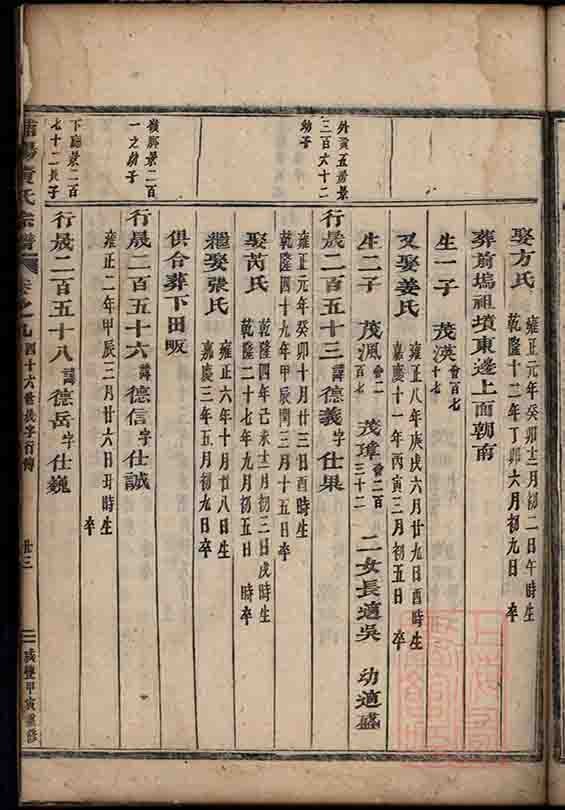 娶方氏
雍正元年癸卯十二月初二日午時生
乾隆十二年丁卯六月初九日　卒
葬前塢祖墳東邊上面朝南
生一子　茂渶
又娶姜氏
雍正八年庚戌六月廿九日酉時生
嘉慶十一年丙寅三月初五日　卒
生二子　茂渢　茂璋　二女長適吳　幼適盛
外黃五景
三百六十二
幼子
行晟二百五十三諱德義字仕果
雍正元年癸卯十月廿三日酉時生
乾隆四十九年甲辰閏三月十五日卒
娶芮氏
乾隆四年己未十二月初三日戌時生
乾隆二十七年九月初五日　時卒
繼娶張氏
雍正六年十月廿八日生
嘉慶三年五月初九日卒
俱合葬下田畈
景二百
一之幼子
行晟二百五十六諱德信字仕誠
雍正二年甲辰三月廿六日丑時生
卒
下廳景二百
七十二長子
行晟二百五十八諱德岳字仕巍
黃氏宗譜
卷之九
四十六世
廿三
咸豐甲寅重修